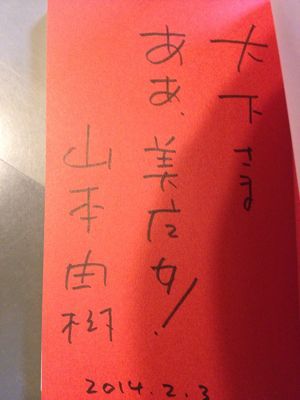 大下さま
ああ、美店女!
山本由樹
2014.2.3